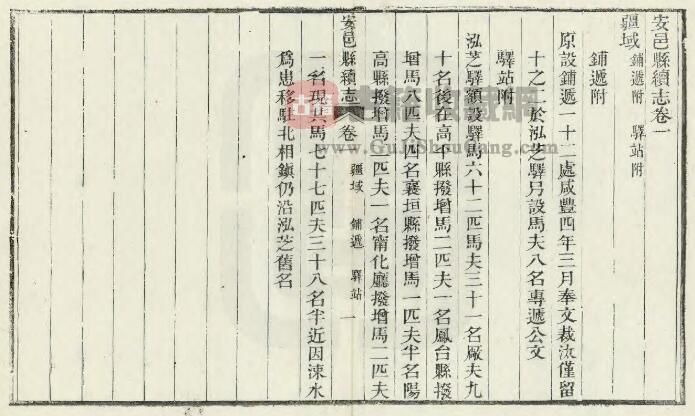 安邑縣續志卷一
疆域 鋪遞附 驛站附
鋪遞附
原設鋪遞一十二處咸豐四年三月奉文裁汰僅留
十之二於泓芝驛另設馬夫八名專遞公文
驛站附
泓芝驛額設驛馬六十二匹馬夫三十一名厰夫九
十名後在高平縣撥增馬二匹夫一名鳳台縣撥
增馬八匹夫四名襄垣縣撥增馬一匹夫半名陽
高縣撥增馬二匹夫一名甯化廳撥增馬二匹夫
安邑縣續志 卷一 疆域 鋪遞 驛站 一
一名現共馬七十七匹夫三十八名半近因涑水
爲患移駐北相鎮仍沿泓芝舊名
古籍
古籍收藏網
www.GuJiShouCang.com